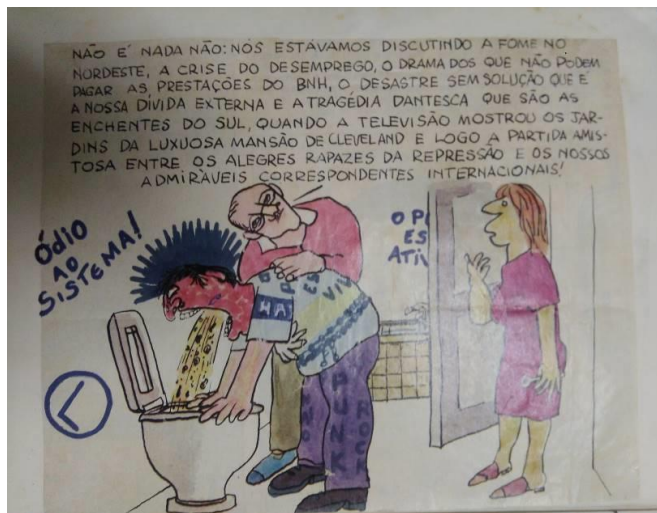 NÃO É NADA NÃO: NÓS ESTÁVAMOS DISCUTINDO A FOME NO
NORDESTE, A CRISE DO DESEMPREGO, O DRAMA DOS QUE NÃO PODEM
PAGAR AS PRESTAÇÕES DO BNH, O DESASTRE SEM SOLUÇÃO QUE É
A NOSSA DÍVIDA EXTERNA E A TRAGÉDIA DANTESCA QUE SÃO AS
ENCHENTES DO SUL, QUANDO A TELEVISÃO MOSTROU OS JAR-
DINS DA LUXUOSA MANSÃO DE CLEVELAND E LOGO A PARTIDA AMIS-
TOSA ENTRE OS ALEGRES RAPAZES DA REPRESSÃO E OS NOSSOS
ADMIRÁVEIS CORRESPONDENTES INTERNACIONAIS!
ÓDIO
AO
SISTEMA!
ES
ATIV
PUNK
ROCK